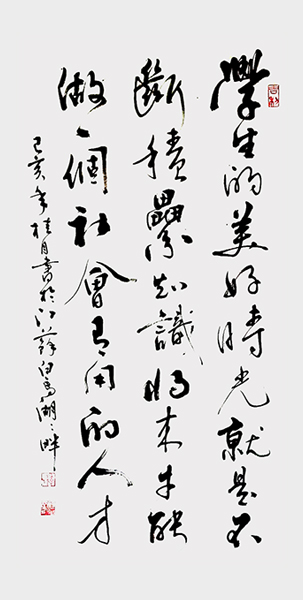 學生的美好時光就是不
斷積纍知識将来才能
做一個社會有用的人才
己亥年桂月書於江蘇白馬湖々畔